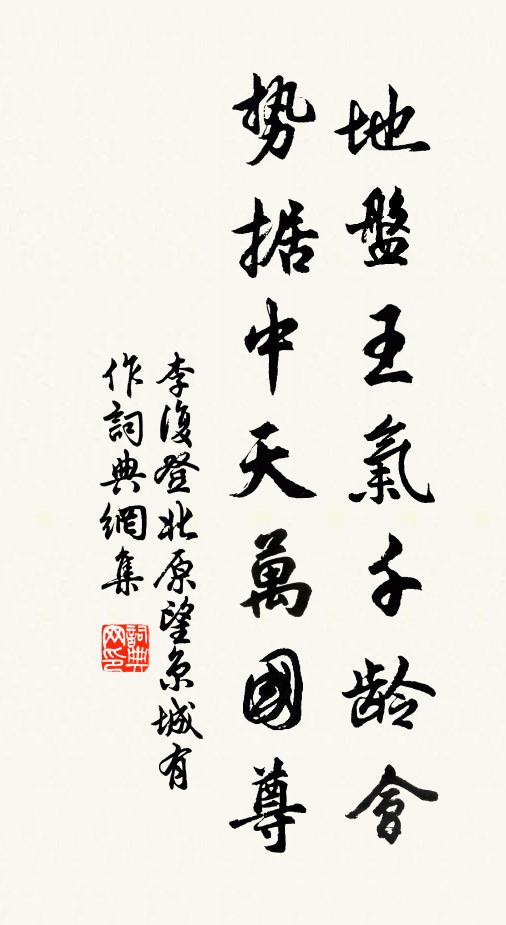 地盤王氣千齡會
势据中天萬國尊
李復登北原望京城有
作詞典網集
詞典网印